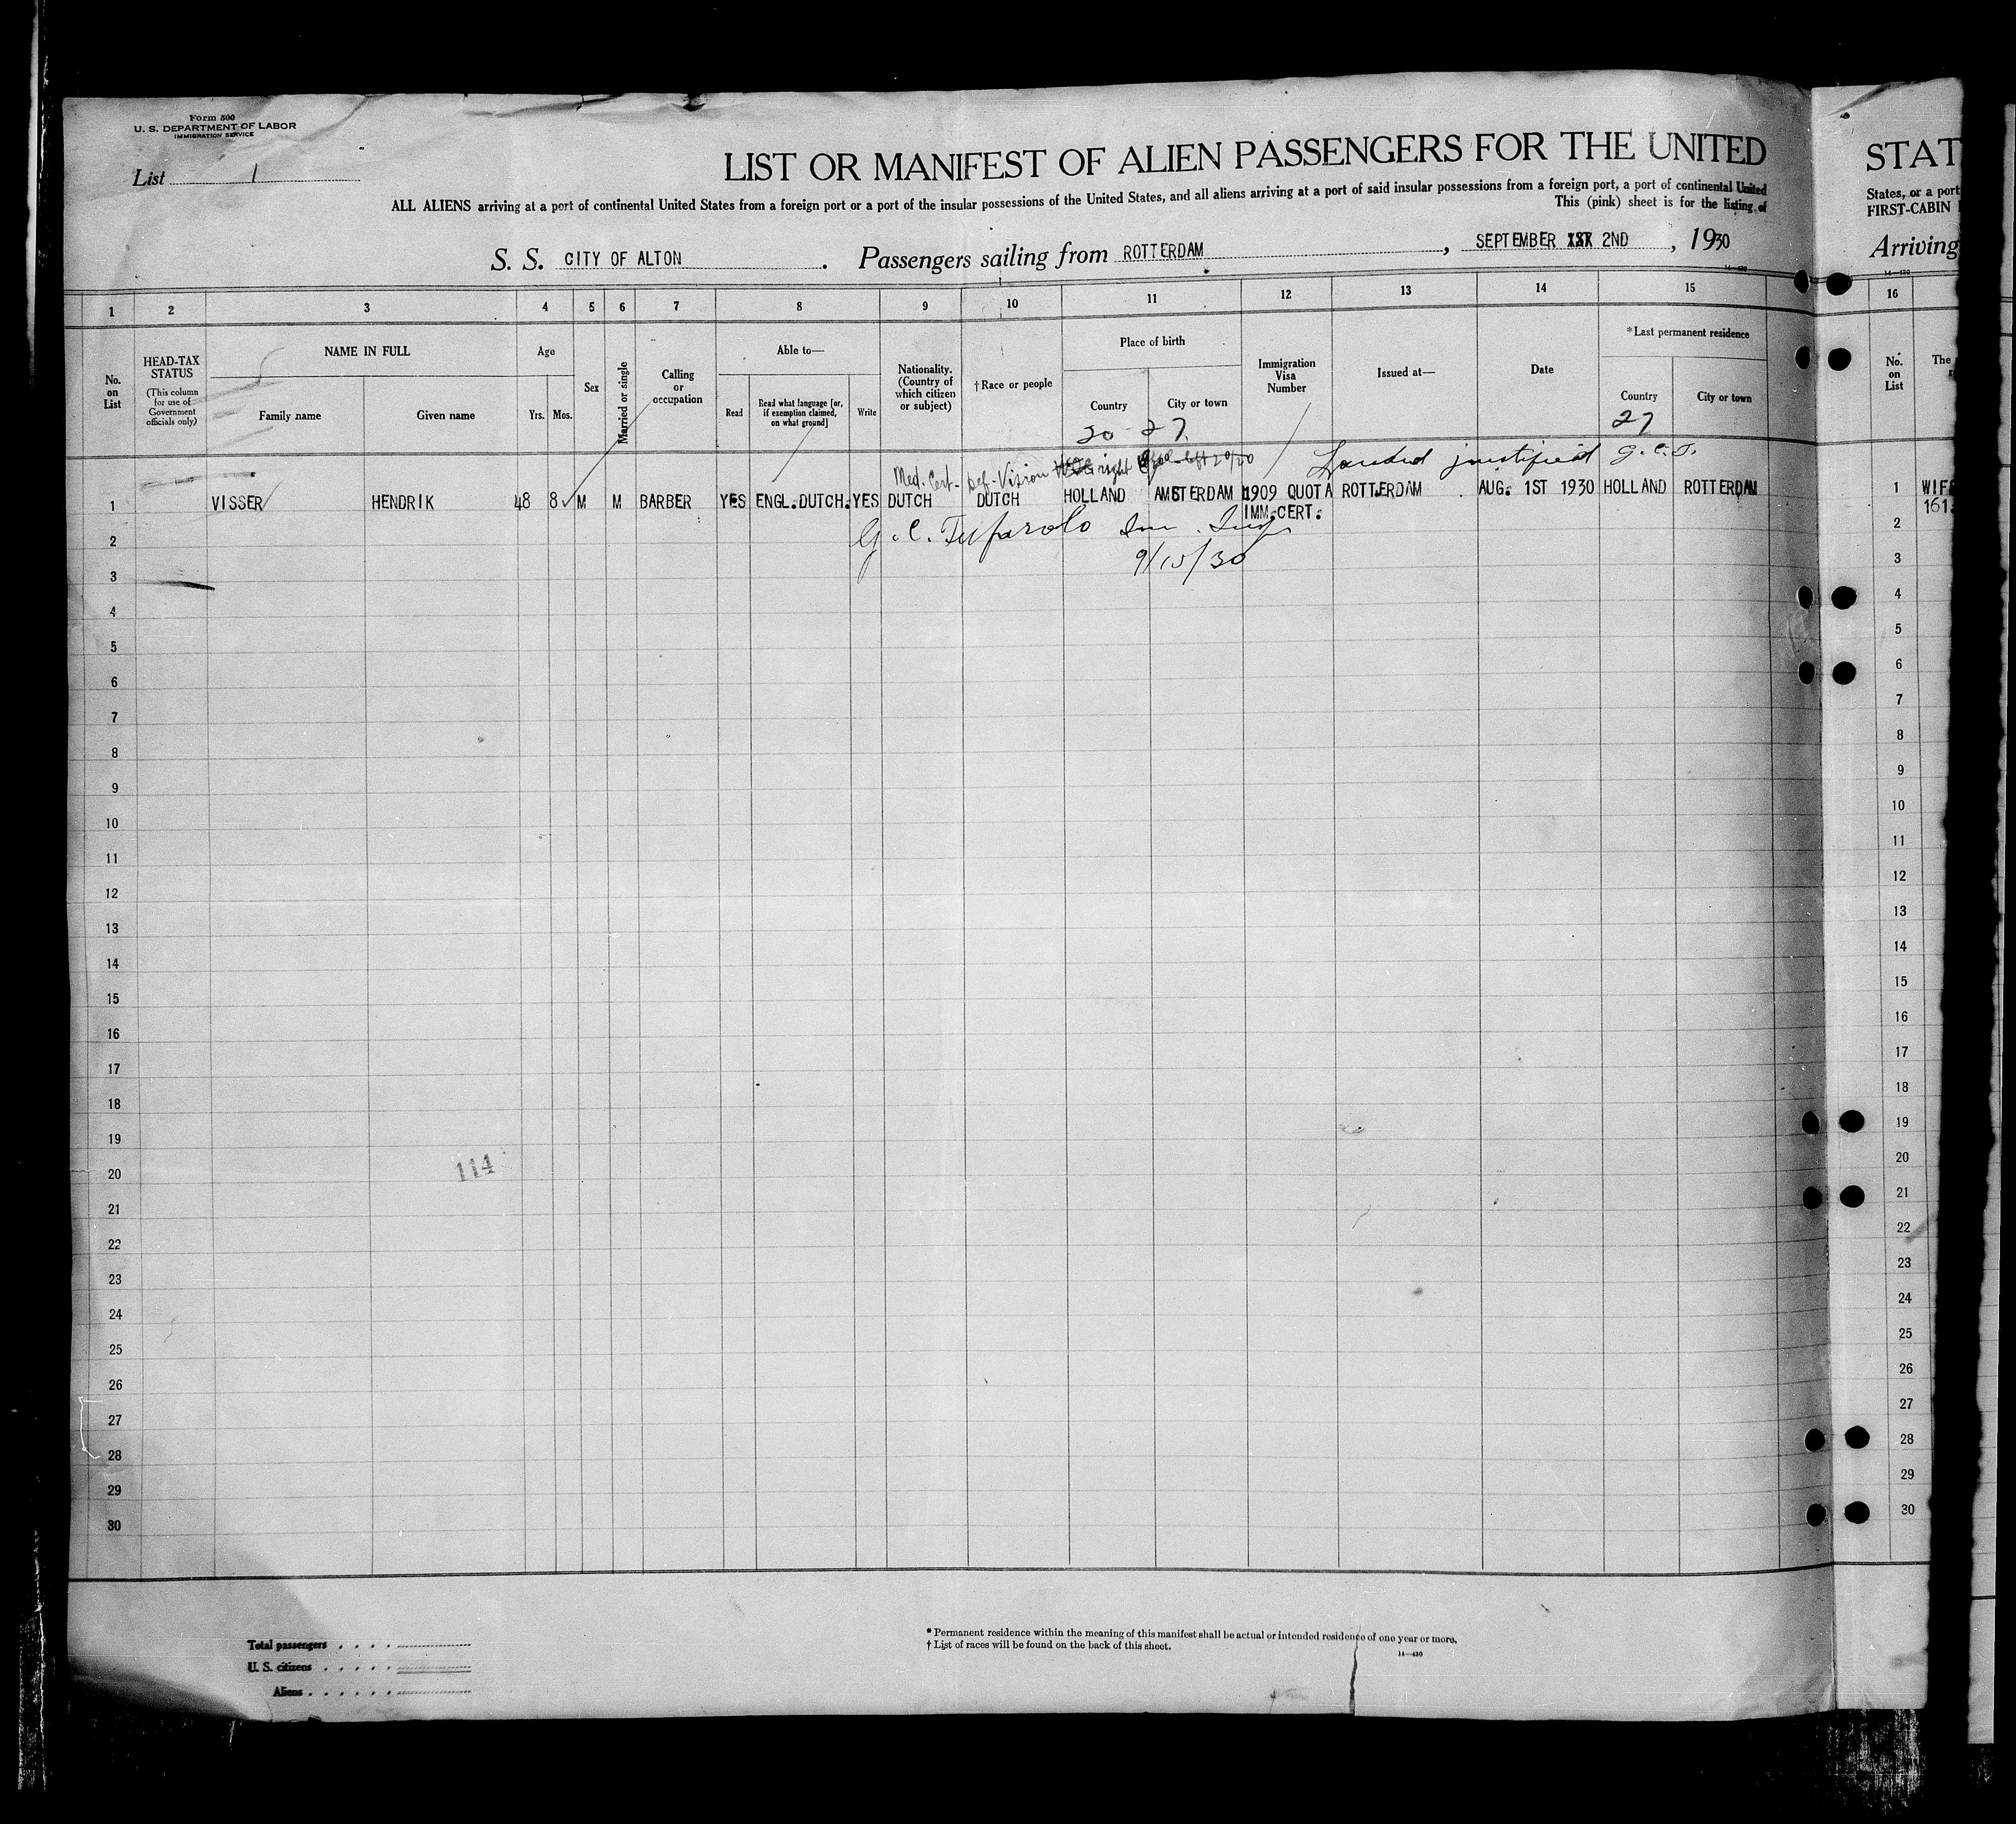 Form 500
U. S. DEPARTMENT OF LABOR
IMMIGRATION SERVICE
List 1
LIST OR MANIFEST OF ALIEN PASSENGERS FOR THE UNITED
ALL ALIENS arriving at a port of continental United States from a foreign port or a port of the insular possessions of the United States, and all aliens arriving at a port of said insular possessions from a foreign port, a port of continental United
This (pink) sheet is for the listing of
S. S. CITY OF ALTON . Passengers sailing from ROTTERDAM , SEPTEMBER 2ND , 1930
14—430
1 2 3 4 5 6 7 8 9 10 11 12 13 14 15
No. on List
HEAD-TAX STATUS
(This column for use of Government officials only)
NAME IN FULL
Family name Given name
Age
Yrs. Mos.
Sex
Married or single
Calling or occupation
Able to—
Read
Read what language [or, if exemption claimed, on what ground]
Write
Nationality. (Country of which citizen or subject)
†Race or people
Place of birth
Country City or town
20 27
Immigration Visa Number
Issued at—
Date
*Last permanent residence
Country City or town
27
Med. Cert. Def. Vision right left 20/20 Landed justified G.C.T.
1 VISSER HENDRIK 48 8 M M BARBER YES ENGL.DUTCH. YES DUTCH DUTCH HOLLAND AMSTERDAM 1909 QUOTA ROTTERDAM AUG. 1ST 1930 HOLLAND ROTTERDAM
IMM.CERT.
2 G. C. Tufarolo Imm. Insp.
3 9/15/30
4
5
6
7
8
9
10
11
12
13
14
15
16
17
18
19
20 114
21
22
23
24
25
26
27
28
29
30
Total passengers
U. S. citizens
Aliens
* Permanent residence within the meaning of this manifest shall be actual or intended residence of one year or more.
† List of races will be found on the back of this sheet.
14—430
STAT
States, or a port
FIRST-CABIN
Arriving
14—430
16
No. on List
The
1 WIF
161
2
3
4
5
6
7
8
9
10
11
12
13
14
15
16
17
18
19
20
21
22
23
24
25
26
27
28
29
30